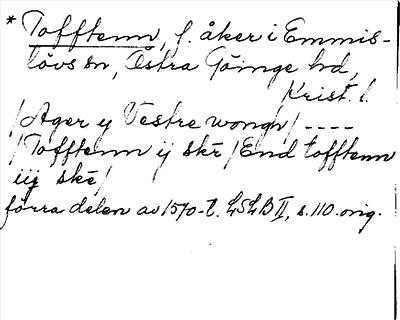 * Tofftenn, f. åker i Emmis-
lövs sn, Östra Göinge hd,
Krist. l.
/Ager y Vestre wongn/ ----
/Tofftenn ij skē/End tofftenn
iij skē/
förra delen av 1570-t. LSLB II, s. 110. orig.